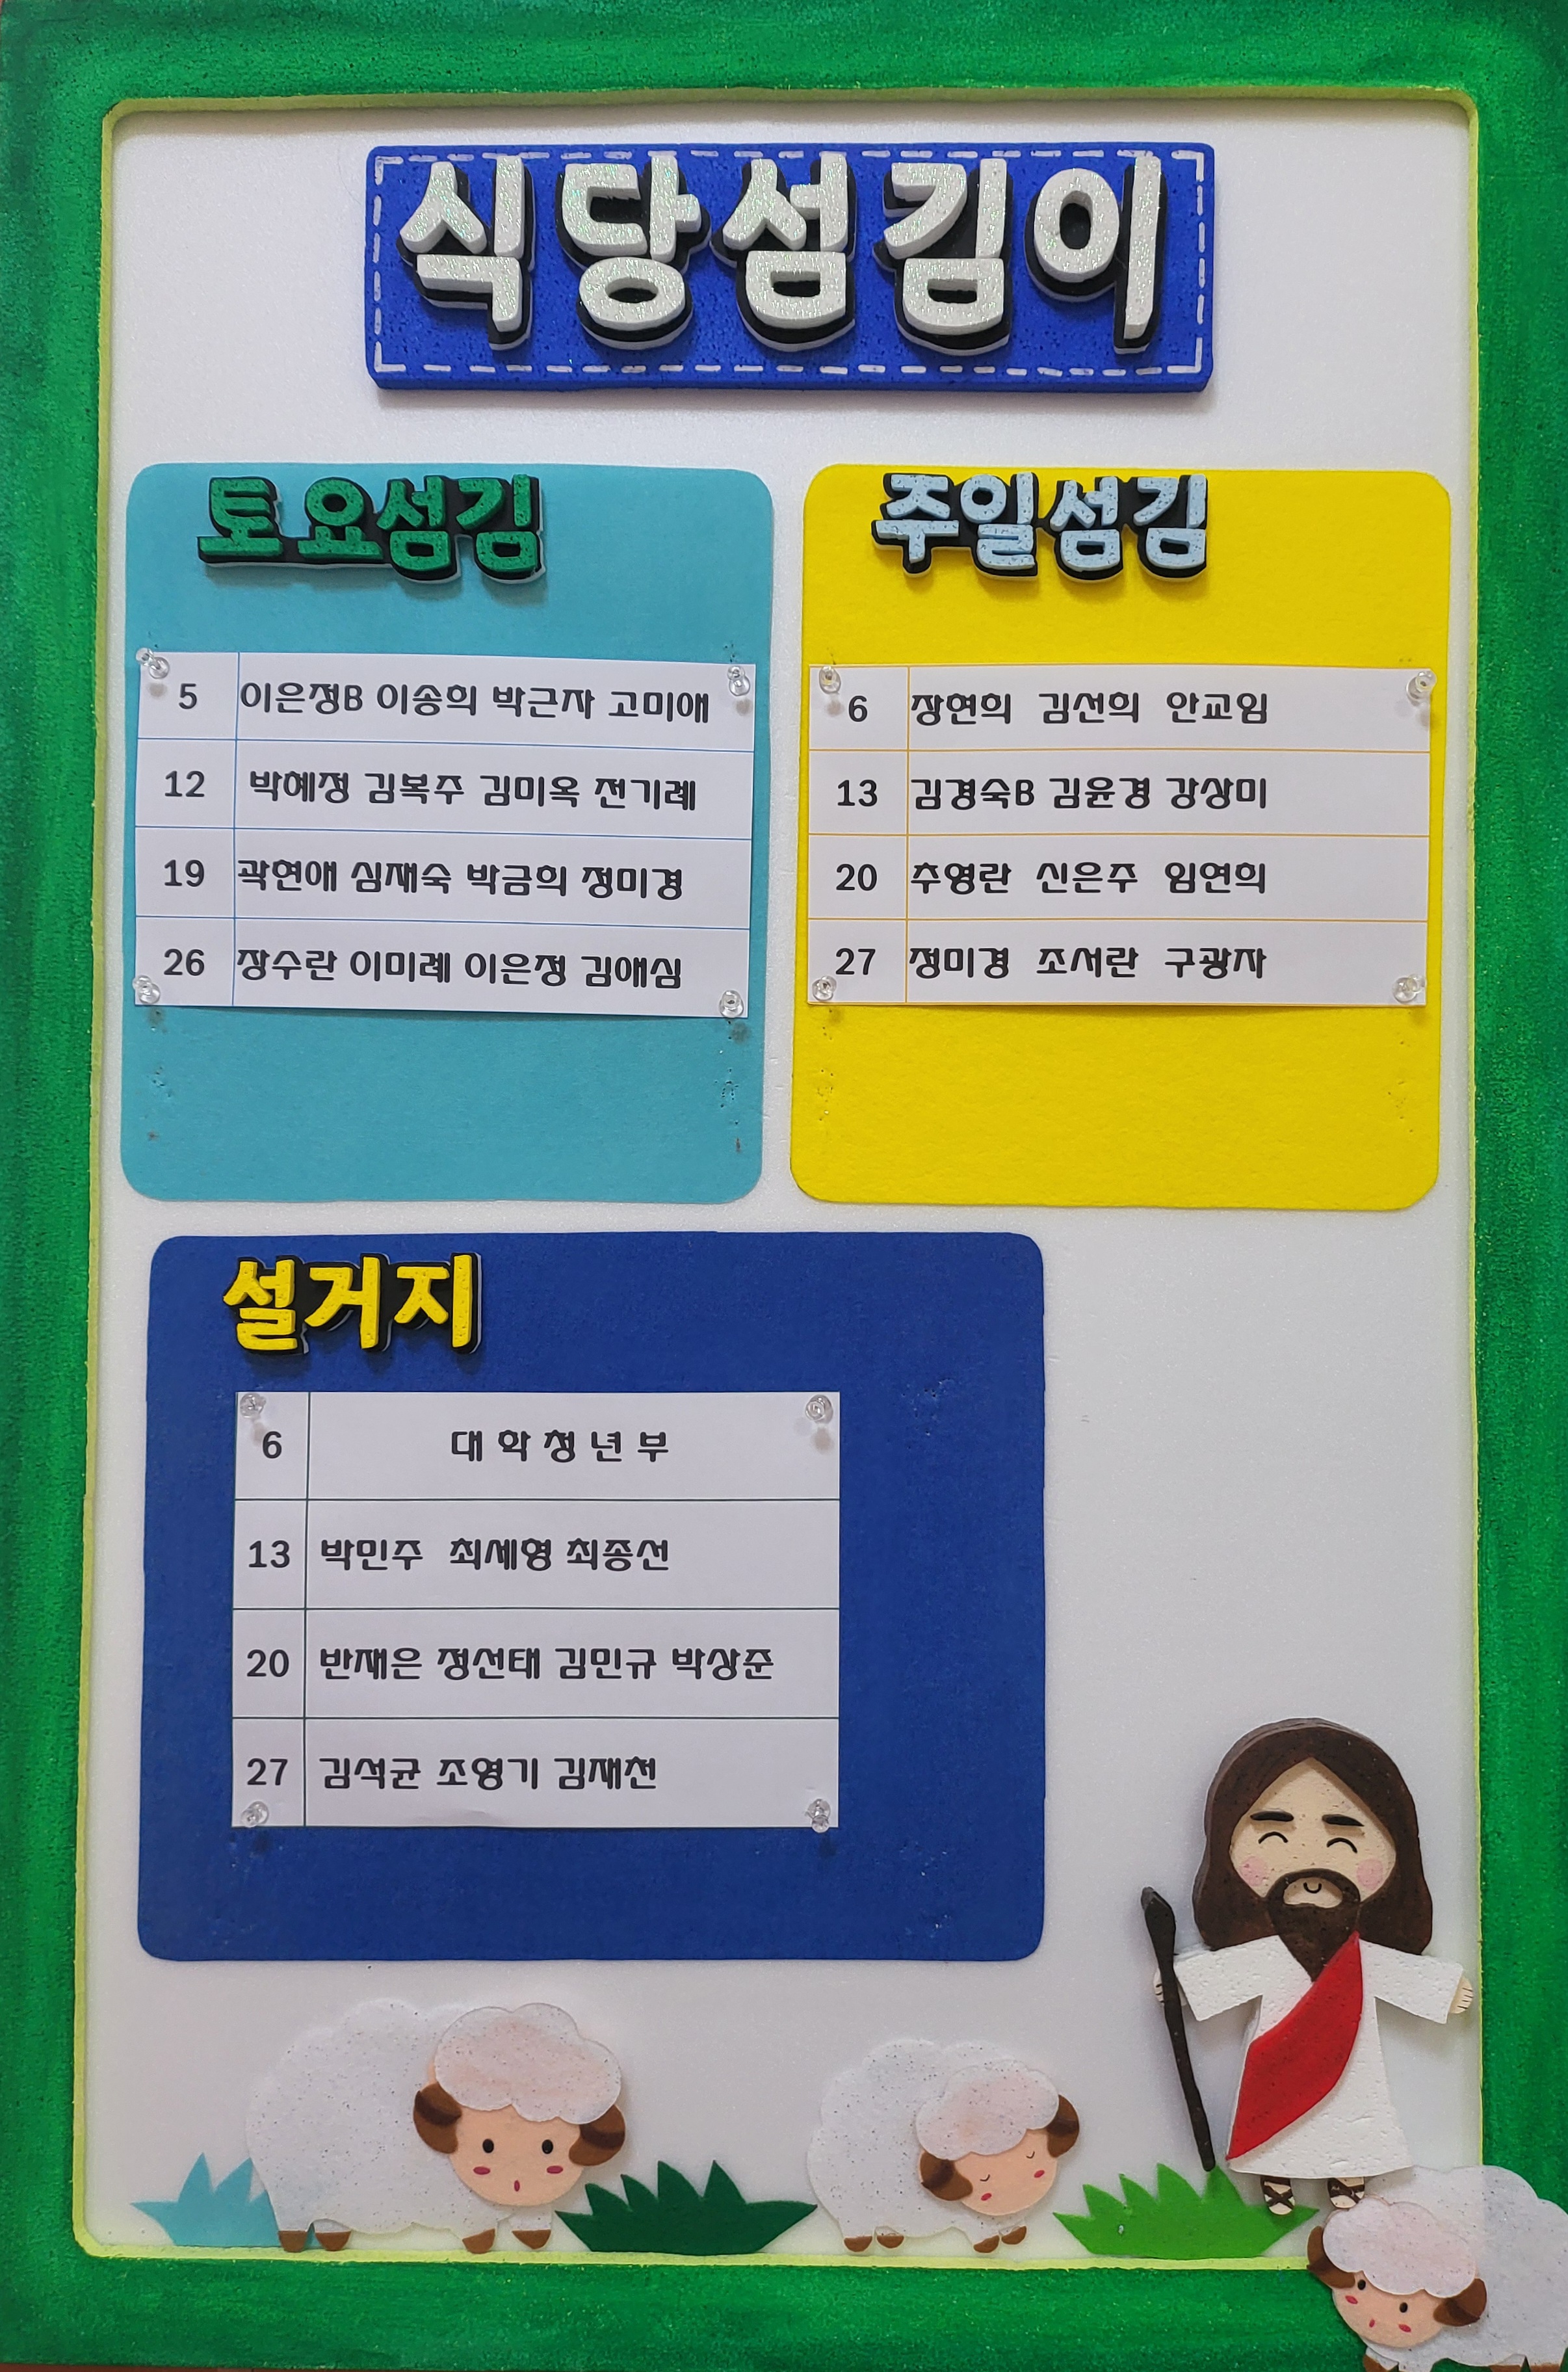 식당섬김이
토요섬김
5 이은정B 이송희 박근자 고미애
12 박혜정 김복주 김미옥 전기례
19 곽현애 심재숙 박금희 정미경
26 장수란 이미례 이은정 김애심
주일섬김
6 장현희 김선희 안교임
13 김경숙B 김윤경 강상미
20 추영란 신은주 임연희
27 정미경 조서란 구광자
설거지
6 대 학 청 년 부
13 박민주 최세영 최종선
20 반재은 정선태 김민규 박상준
27 김석균 조영기 김재천